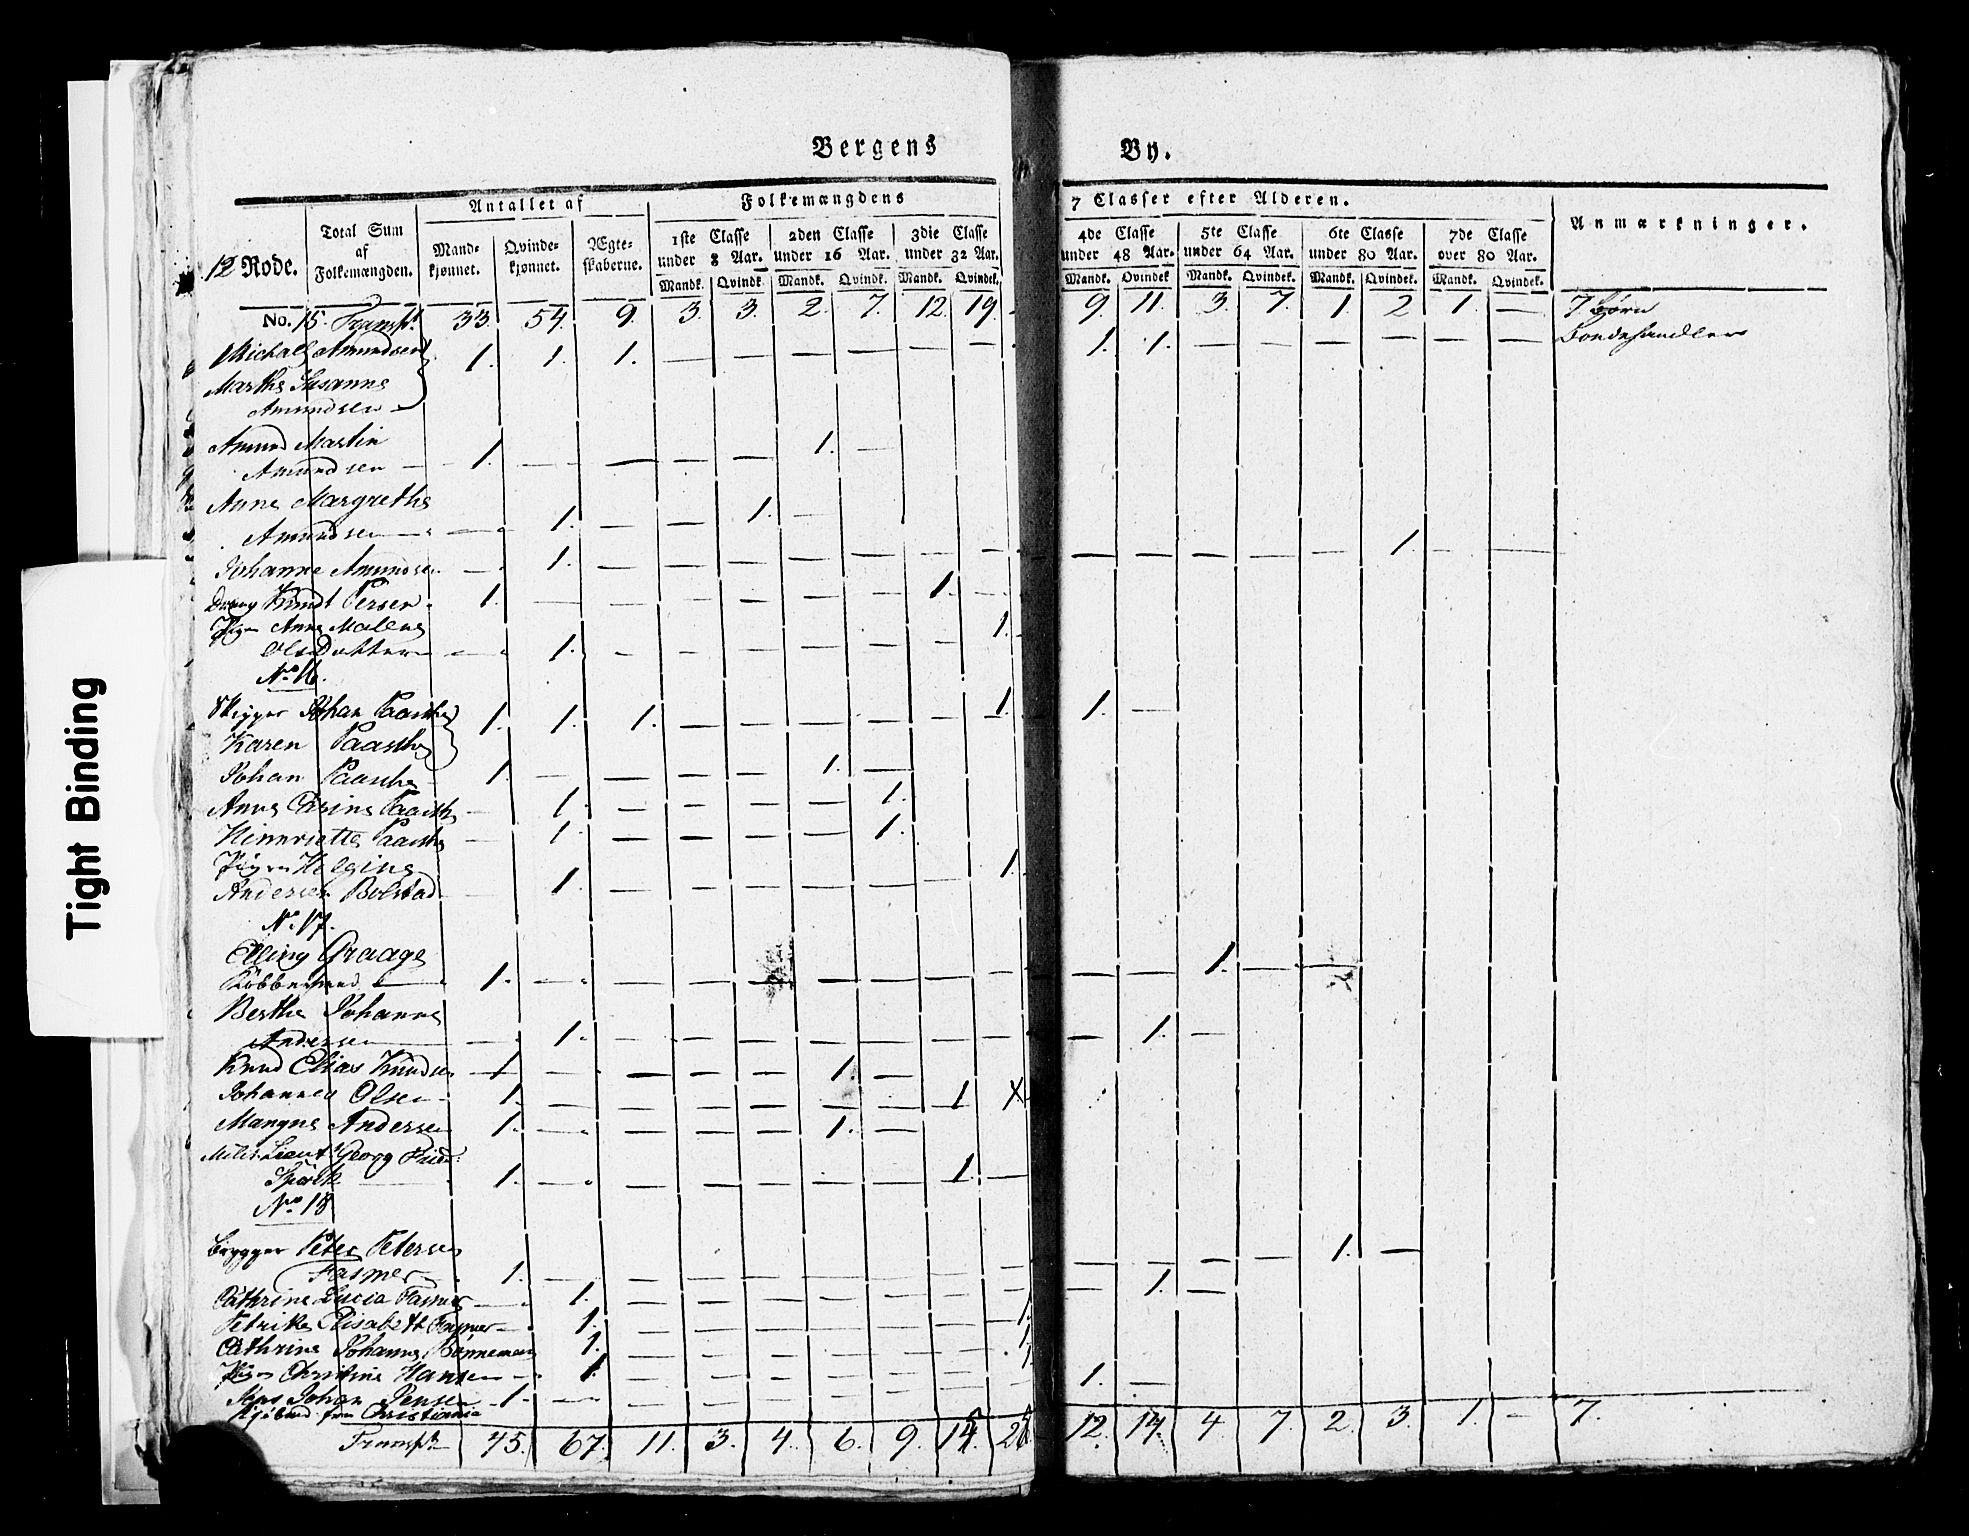 Bergens By.
12 Rode.
Total Sum af Folkemængden.
Antallet af
Mandkjønnet. Qvindekjønnet. Ægteskaberne.
Folkemængdens 7 Classer efter Alderen.
1ste Classe under 8 Aar. 2den Classe under 16 Aar. 3die Classe under 32 Aar. 4de Classe under 48 Aar. 5te Classe under 64 Aar. 6te Classe under 80 Aar. 7de Classe over 80 Aar.
Mandk. Qvindk. Mandk. Qvindk. Mandk. Qvindek. Mandk. Qvindek. Mandk. Qvindek. Mandk. Qvindek. Mandk. Qvindek.
Anmærkninger.
No. 15. Transpt 33. 54. 9. 3. 3. 2. 7. 12. 19. 9. 11. 3. 7. 1. 2 1. — 7 Børn
Michael Amundsen 1. 1. 1. — — — — — — 1. 1. — — — — — — Bondehandler
Marthe Susanne
Amundsen
Amund Martin
Amundsen — 1. — — — — 1. —
Anne Margrethe
Amundsen — — 1. — — 1. —
Johanne Amundsen — 1. — — — — — — — — — — — — 1. — —
Dreng Knudt Persen 1. — — — — — — 1. —
Pigen Anne Malene
Olsdatter — 1. — — — — — — 1.
No 16.
Brygger Johan Paasche 1. 1. 1. — — — — — 1. 1. —
Karen Paasche
Johan Paasche 1. — — — — 1. —
Anne Cathrine Paasche — 1. — — — — 1.
Hennriette Paasche — 1. — — — — 1.
Pigen Helgine
Andersen Bolstad — 1. — — — — — — 1.
No. 17.
Elling Graage
Kobbersmed 1. — — — — — — — — — — 1. — —
Berthe Johanne
Andersen — — 1. — — — — — — — — 1. —
Knud Elias Knudsen 1 — — — — 1. —
Johannes Olsen 1. — — — — — — 1 X
Mangnus Andersen 1. — — — — 1. —
Milit. Lieut. Georg Fried:
Spörck — 1. — — — — — — 1. —
No 18
Brygger Peter Petersen
Fasmer 1. — — — — — — — — — — — — 1. —
Cathrine Lucia Fasmer — 1. — — — — — — — — 1. —
Petrike Elisabeth Fasmer — 1. — — — — — — 1.
Cathrine Johanne Bonneman 1. — — — — — — 1.
Pigen Christine Hansen — 1. — — — — — — 1.
Jens Johan Jensen 1. — — — — — — — — 1. —
Kjøbmd. fra Christiania
Transpt 45. 67. 11. 3. 4. 6. 9. 12. 14. 4 7. 2. 3. 1. — 7.
Tight Binding